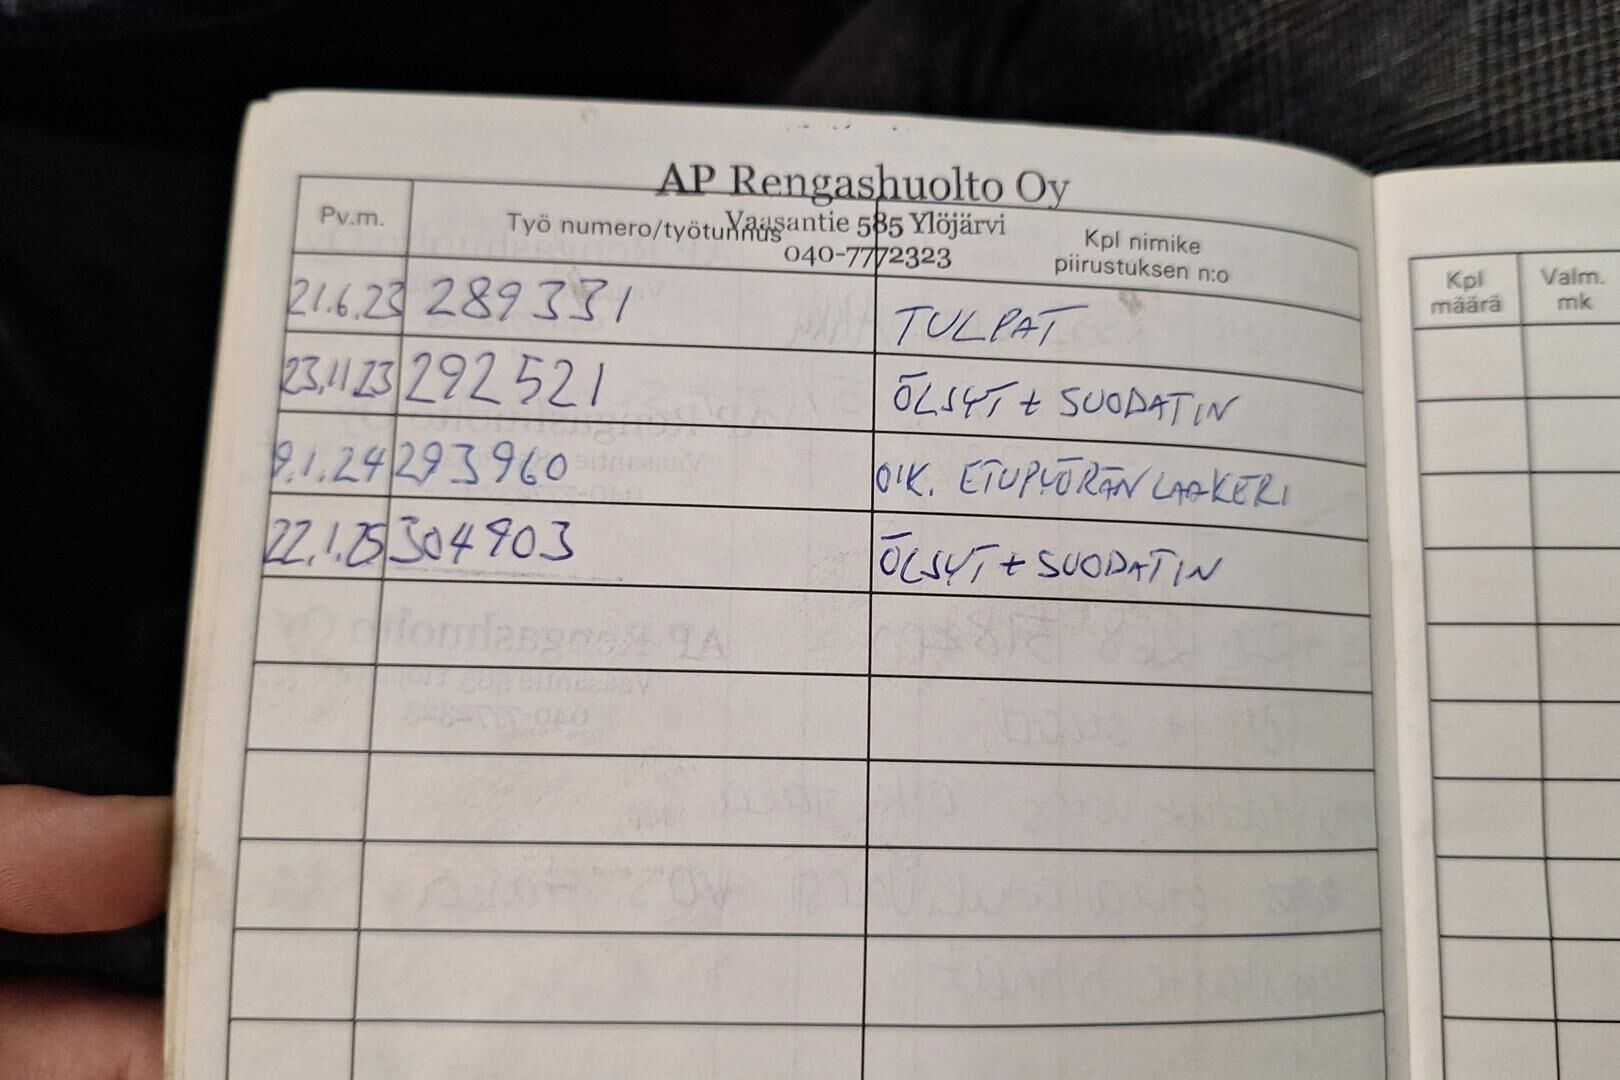 AP Rengashuolto Oy
Vaasantie 585 Ylöjärvi
040-7772323
Pv.m. Työ numero/työtunnus Kpl nimike piirustuksen n:o Kpl määrä Valm. mk
21.6.23 289331 TULPAT
23.11.23 292521 ÖLJYT + SUODATIN
9.1.24 293960 OIK. ETUPYÖRÄN LAAKERI
22.1.25 304903 ÖLJYT + SUODATIN